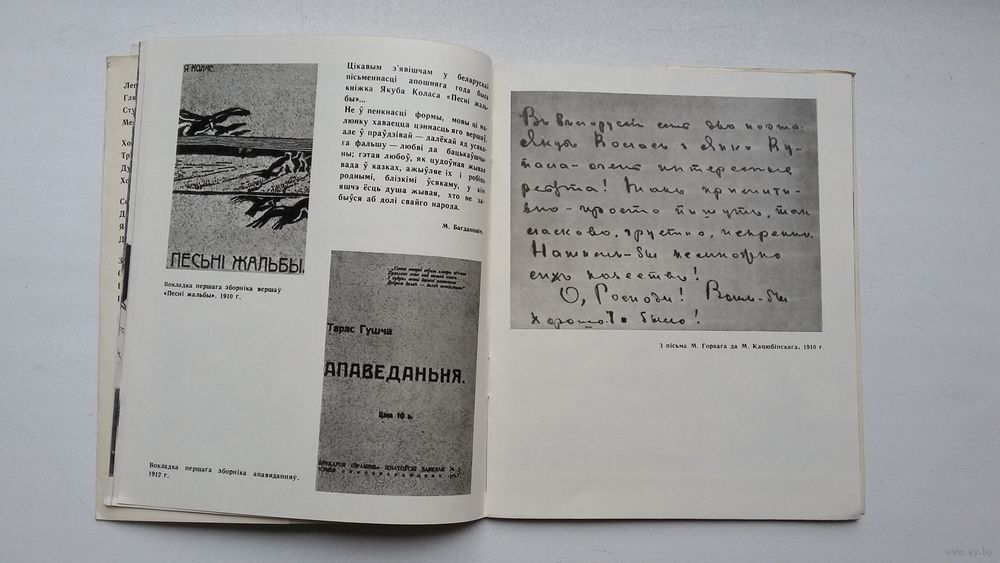 Я КОЛАС.
ПЕСЬНІ ЖАЛЬБЫ.
Вокладка першага зборніка вершаў
«Песні жальбы». 1910 г.
Цікавым з'явішчам у беларускай
пісьменнасці апошняга года была
кніжка Якуба Коласа «Песні жаль-
бы»...
Не ў пекнасці формы, мовы ці ма-
люнку хаваецца цэннасць яго вершаў,
але ў праўдзівай — далёкай ад усяка-
га фальшу — любві да бацькаўшчы-
ны; гэтая любоў, як цудоўная жывая
вада ў казках, ажыўляе іх і робіць
роднымі, блізкімі ўсякаму, у кім
яшчэ ёсць душа жывая, хто не за-
быўся аб долі свайго народа.
М. Багдановіч.
Тарас Гушча
АПАВЕДАНЬНЯ.
Цана 10 к.
Вокладка першага зборніка апавяданняў.
1912 г.
Въ Белоруссіи есть два поэта:
Якубъ Коласъ и Янко Ку-
пала — очень интересные
ребята! Такъ примити-
вно-просто пишутъ, такъ
ласково, грустно, искренно.
Нашимъ-бы немножко
сихъ качествъ!
О, Господи! Вотъ-бы
хорошо-то было!
З пісьма М. Горкага да М. Кацюбінскага, 1910 г.
www.ay.by